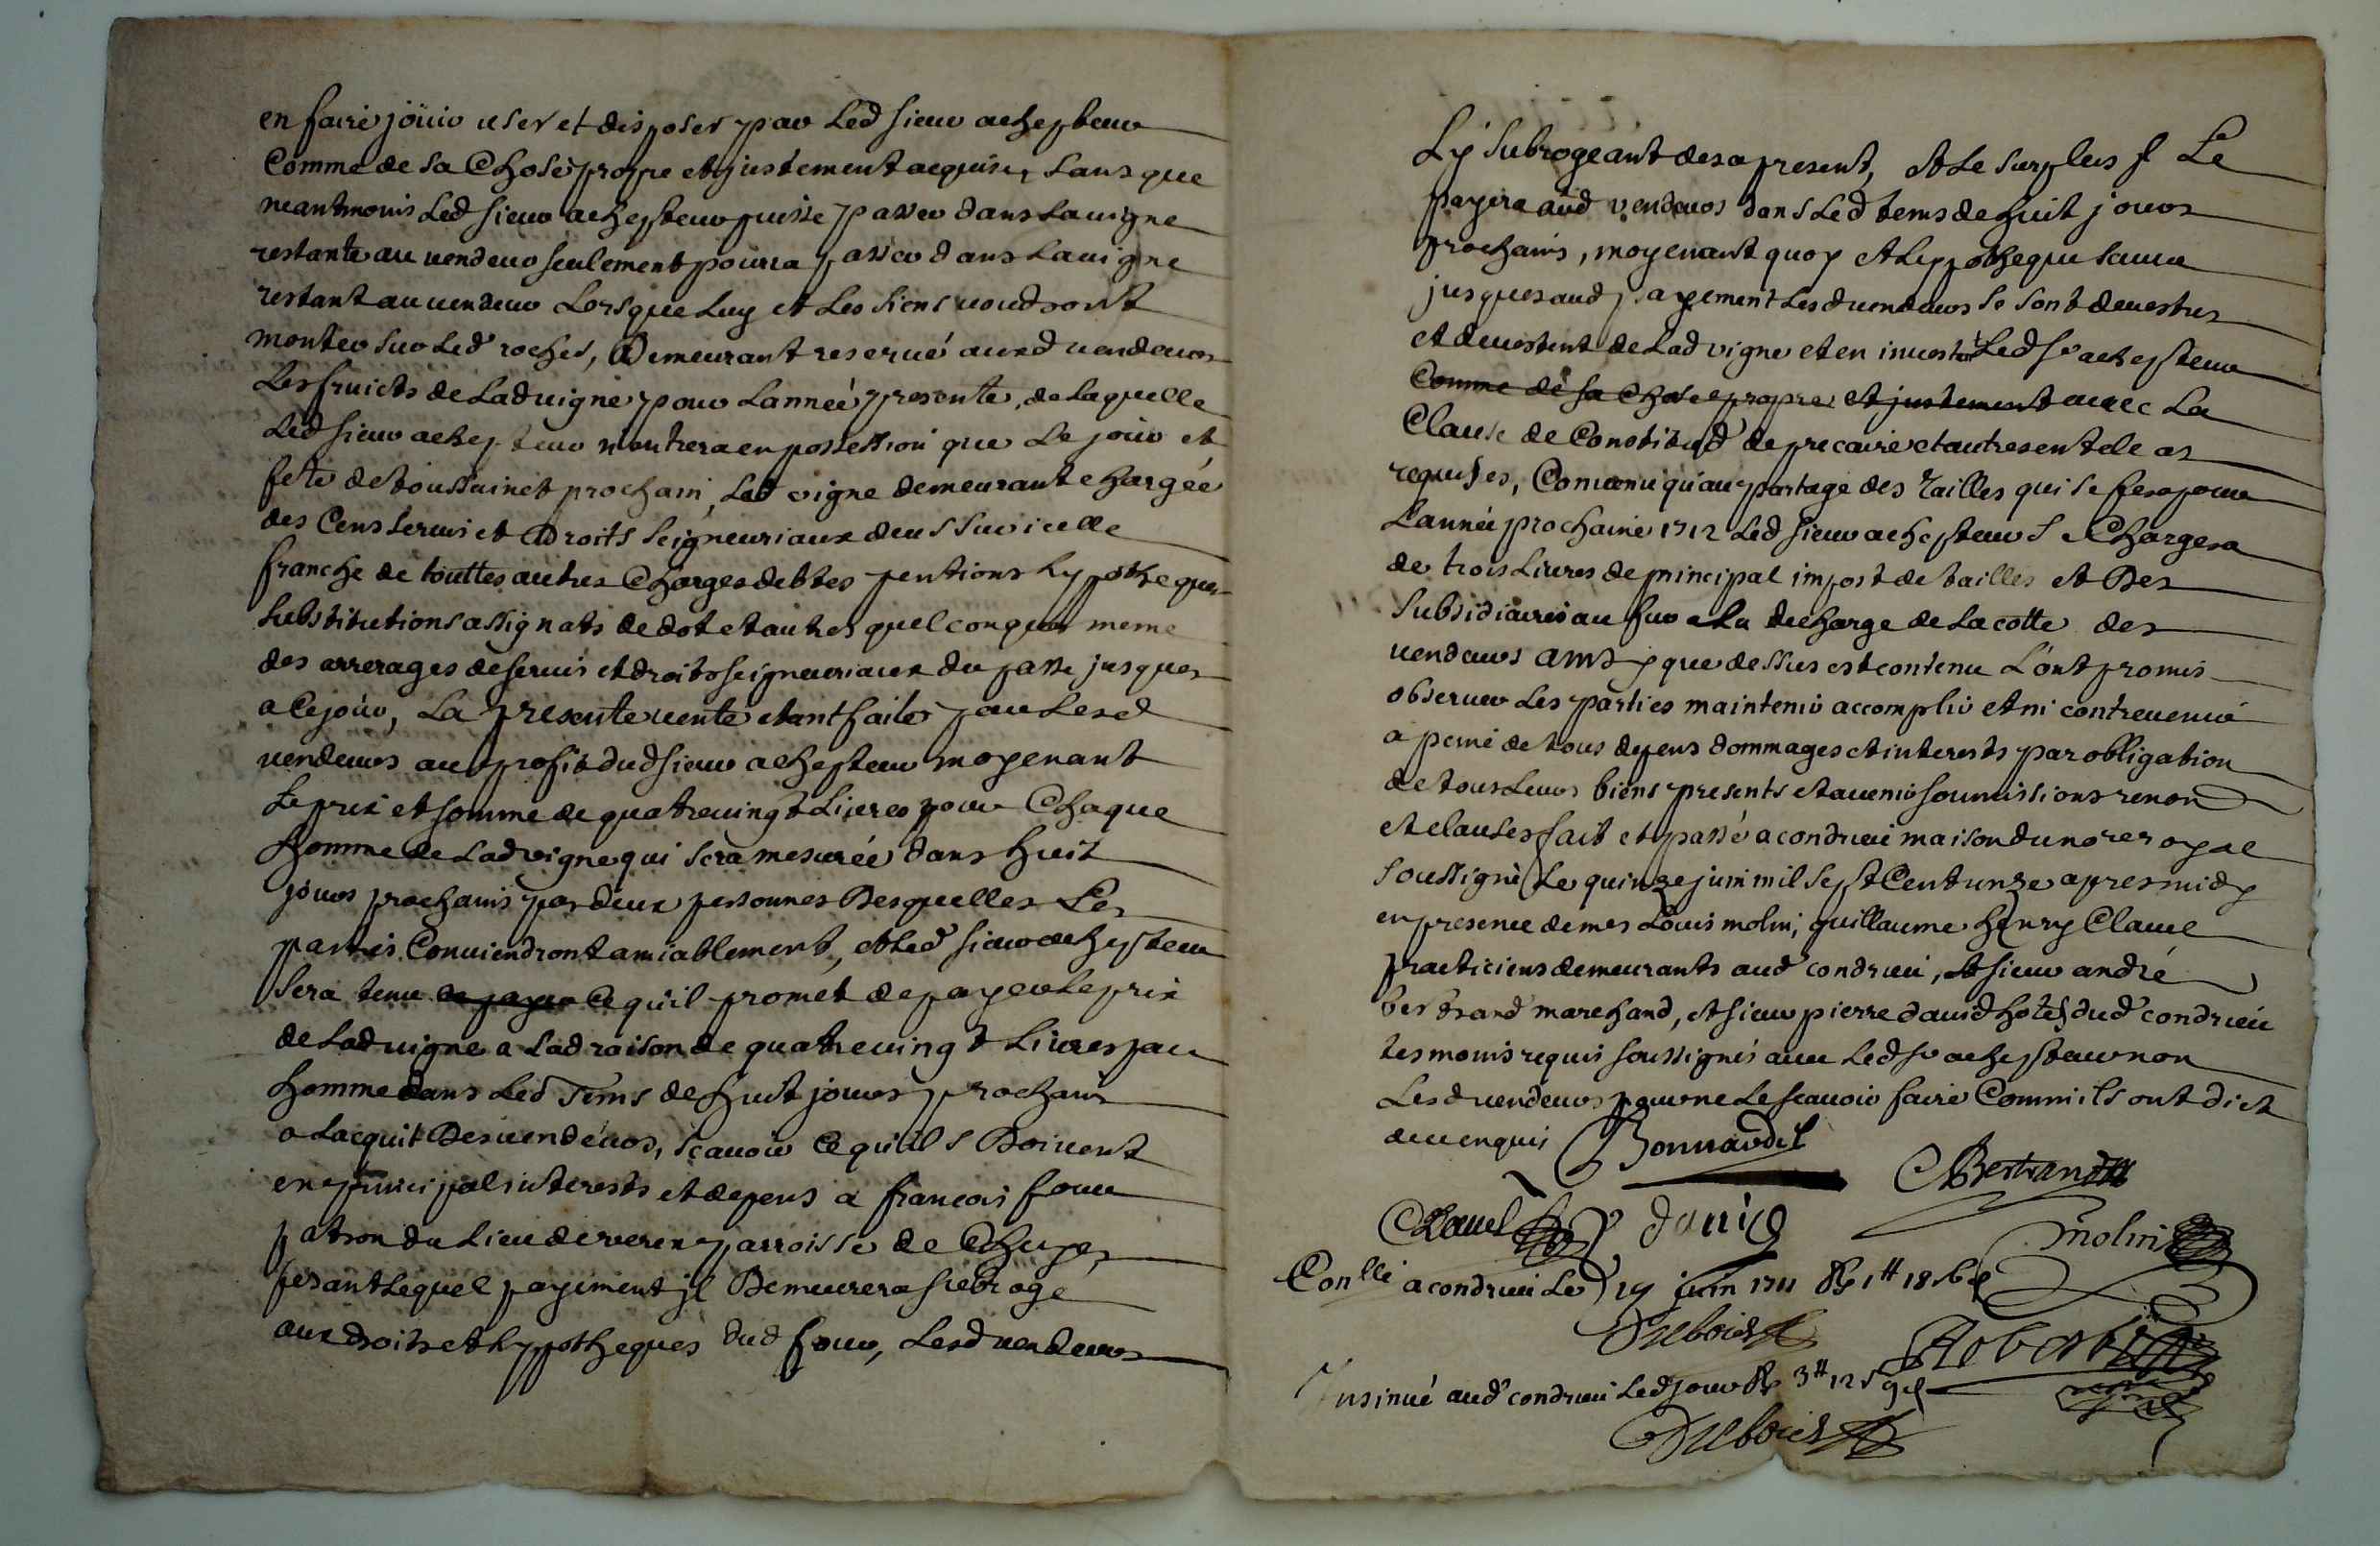 en faire joüir user et disposer par Led sieur achepteur
Comme de sa Chose propre et justement acquise, sans que
neantmoins Led sieur achepteur puisse passer dans La vigne
restante au vendeur seulement pourra passer dans La vigne
restant au vendeur Lorsque Luy et Les siens voudront
monter sur Led rocher, Demeurant reservé auxd vendeurs
Les fruicts de Lad vigne pour Lanneé presente, de Laquelle
Led sieur achepteur n'entrera en possession que Le jour et
fete de toussainct prochain, Lad vigne demeurant chargée
des Cens servis et Droits seigneuriaux deus sur icelle
franche de touttes autres Charges debtes pentions hypotheques
substitutions assignats de dot et autres quelconques meme
des arrerages de servis et droits seigneuriaux du passé jusques
a Ce jour, La presente vente etant faite par Lesd
vendeurs au profit dud sieur achepteur moyenant
Le prix et somme de quatrevingt Livres pour Chaque
homme de Lad vigne qui sera mesurée dans huit
jours prochains par deux personnes Desquelles Les
parties Conviendront amiablement, et Led sieur achepteur
sera tenu de payer Ce qu'il promet de payer Le prix
de Lad vigne a Lad raison de quatrevingt Livres par
homme dans Led Tems de huit jours prochains
a Lacquit Des vendeurs, sçavoir Ce qu'ils Doivent
en principal interests et depens a francois four
patron du Lieu de veren parroisse de Chuyes
fesant Lequel payement jl Demeurera subrogé
aux droits et hypotheques dud four, Lesd vendeurs
Ly subrogeant des a present, et Le surplus jl Le
payera aud vendeurs dans Led tems de huit jours
prochains, moyenant quoy et Lhypotheque sauve
jusques aud payement Lesd vendeurs se sont devestus
et devestent de Lad vigne et en investi Led sr achepteur
Comme de sa Chose propre et justement avec La
Clause de Constitud de precaire et autres en tel cas
requises, Convenu qu'au partage des Tailles qui se fera pour
Lannée prochaine 1712 Led sieur achepteur se Chargera
de trois Livres de principal impost de tailles et Des
subsidiaires au fur a La decharge de La cotte des
vendeurs ainsy que dessus est contenu L'ont promis
observer Les parties maintenir accomplir et ni contrevenir
a peine de tous depens dommages et interests par obligation
de tous Leurs biens presents et avenir soumissions renon
et clauses fait et passé a condrieu maison du nore royal
soussigné Le quinze juin mil sept Cent unze apres midy
en presence de mes Louis molin, guillaume henry Clavel
practiciens demeurants aud condrieu, et sieur andré
bertrand marchand, et sieur pierre david hote dud condrieu
tesmoins requis soussignés avec Led sr achepteur non
Lesd vendeurs pour ne Le scavoir faire Comm ils ont dict
de ce enquis Bonnardel
ABertrand
Clavel P david
molin
Conlle a condrieu Le 19 juin 1711 R 1# 18 s 6 d
Dubois
Robert
Insinué aud condrieu Led jour R 3# 12 s 9 d
Dubois